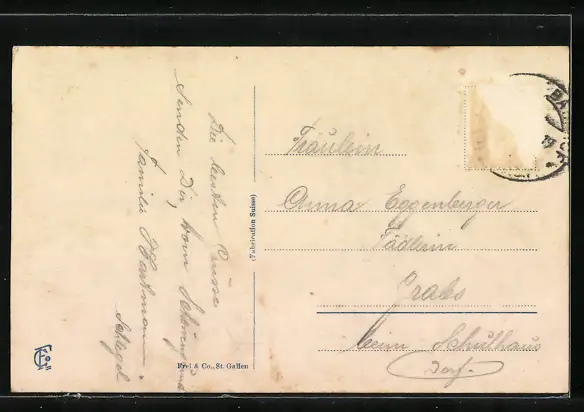 Die besten Grüsse
senden Dir, vom
Familie Hartmann
Schlegel
Frei & Co., St. Gallen
(Fabrication Suisse)
Fräulein
Anna Eggenberger
Fädlerin
Grabs
beim Schulhaus
Dorf.